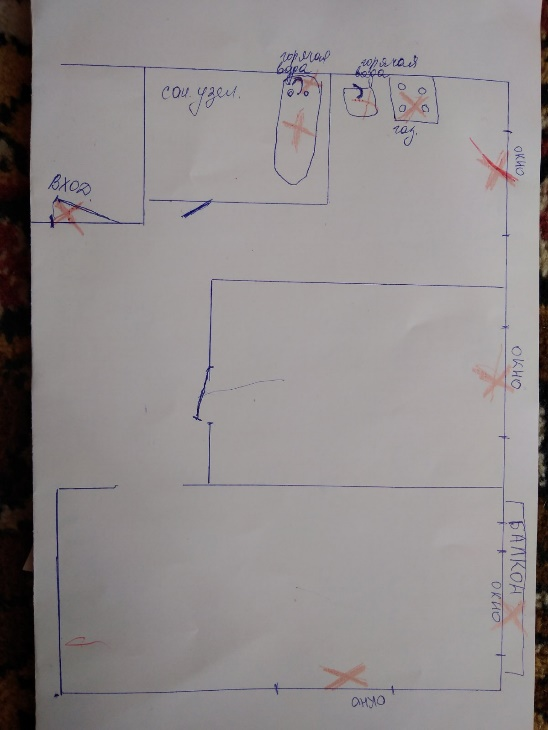 горячая
вода
горячая
вода
сан.узел.
газ.
ОКНО
ВХОД.
ОКНО
БАЛКОН
ОКНО
ОКНО